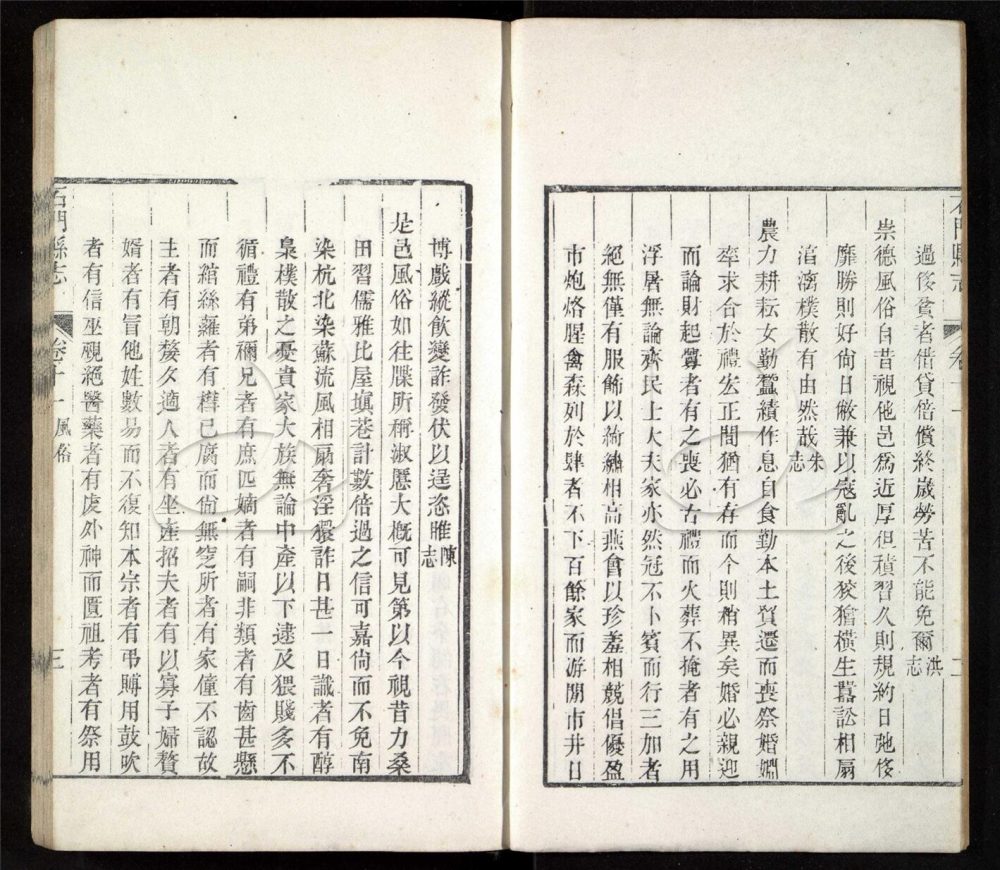 過侈貧者借貸倍償終歲勞苦不能免爾洪志
崇德風俗自昔視他邑爲近厚但積習久則規約日弛侈
靡勝則好尙日敝兼以寇亂之後狡獪橫生囂訟相扇
淆漓樸散有由然哉朱志
農力耕耘女勤蠶績作息自食勤本土質遷而喪祭婚婣
率求合於禮宏正間猶有存而今則稍異矣婚必親迎
而論財起釁者有之喪必古禮而火葬不掩者有之用
浮屠無論齊民士大夫家亦然冠不卜賓而行三加者
絕無僅有服飾以綺繡相高燕會以珍羞相競倡優盈
市炮烙腥禽森列於肆者不下百餘家而游閒市井日
石門縣志
卷十一
風俗
三
博戲縱飲變詐發伏以逞恣睢陳志
是邑風俗如往牒所稱淑慝大槪可見第以今視昔力桑
田習儒雅比屋塡巷計數倍過之信可嘉尙而不免南
染杭北染蘇流風相扇奢淫獧詐日甚一日識者有醇
梟樸散之憂貴家大族無論中產以下逮及猥賤多不
循禮有弟禰兄者有庶匹嫡者有嗣非類者有齒甚懸
而綰絲蘿者有櫘已腐而尙無窆所者有家僮不認故
主者有朝嫠夕適人者有坐產招夫者有以寡子婦贅
婿者有冒他姓數易而不復知本宗者有弔賻用鼓吹
者有信巫覡絕醫藥者有虔外神而匱祖考者有祭用